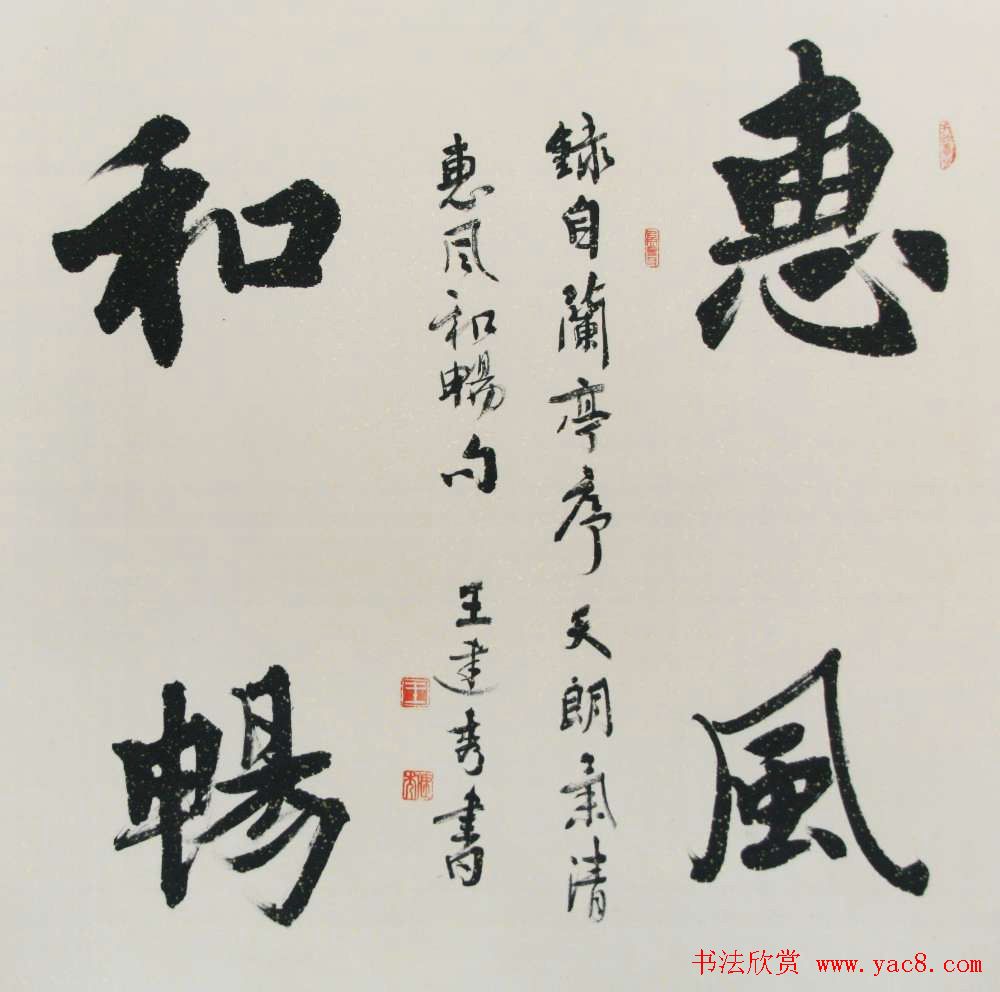 惠風
錄自蘭亭序天朗氣清
惠風和暢句 王建秀書
和暢
书法欣赏 www.yac8.com